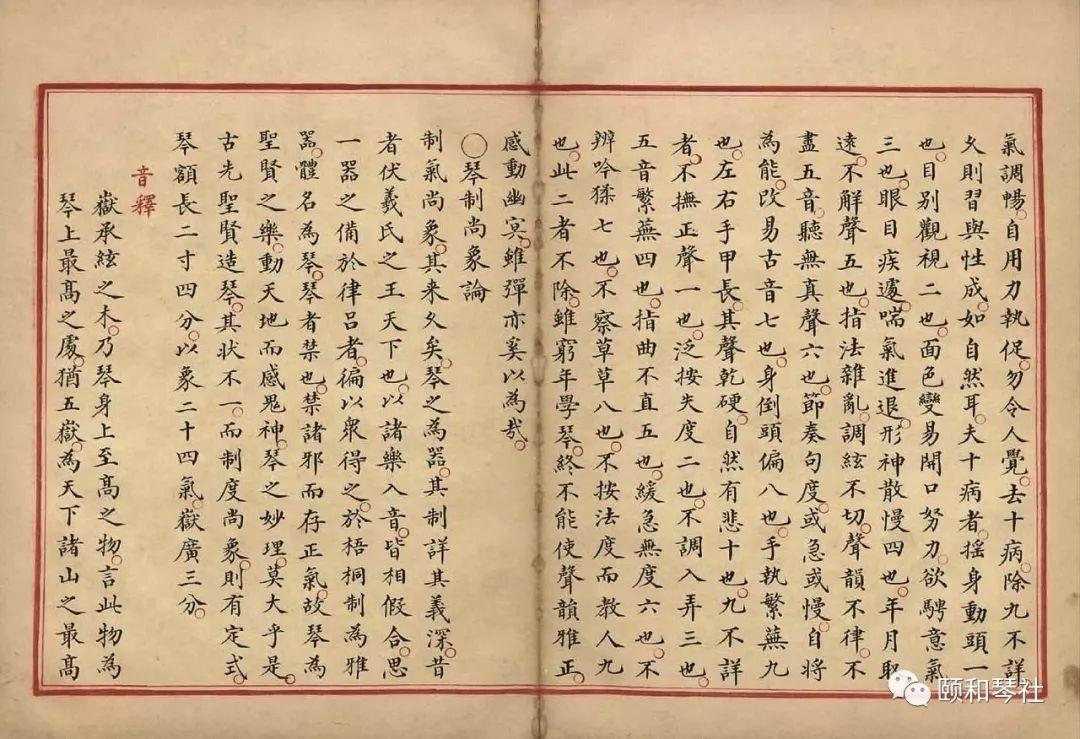 氣調暢自用力執促勿令人覺去十病除九不詳
久則習與性成如自然耳夫十病者揺身動頭一
也目别觀視二也面色變易開口努力欲騁意氣
三也眼目疾遽喘氣進退形神散慢四也年月取
遠不解聲五也指法雜亂調絃不切聲韻不律不
盡五音聽無真聲六也節奏句度或急或慢自將
為能改易古音七也身倒頭偏八也手執繁蕪九
也左右手甲長其聲乾硬自然有悲十也九不詳
者不撫正聲一也泛按失度二也不調入弄三也
五音繁蕪四也指曲不直五也緩急無度六也不
辨吟猱七也不察草草八也不按法度而教人九
也此二者不除雖窮年學琴終不能使聲韻雅正
感動幽冥雖彈亦奚以為㢤
○琴制尚象論
制氣尚象其来久矣琴之為器其制詳其義深昔
者伏羲氏之王天下也以諸樂入音皆相假合思
一器之備於律吕者徧以衆得之於梧桐制為雅
器體名為琴琴者禁也禁諸邪而存正氣故琴為
聖賢之樂動天地而感鬼神琴之妙理莫大乎是
古先聖賢造琴其状不一而制度尚象則有定式
琴額長二寸四分以象二十四氣嶽廣三分
音釋
嶽承絃之木乃琴身上至高之物言此物為
琴上最高之處猶五嶽為天下諸山之最高
颐和琴社